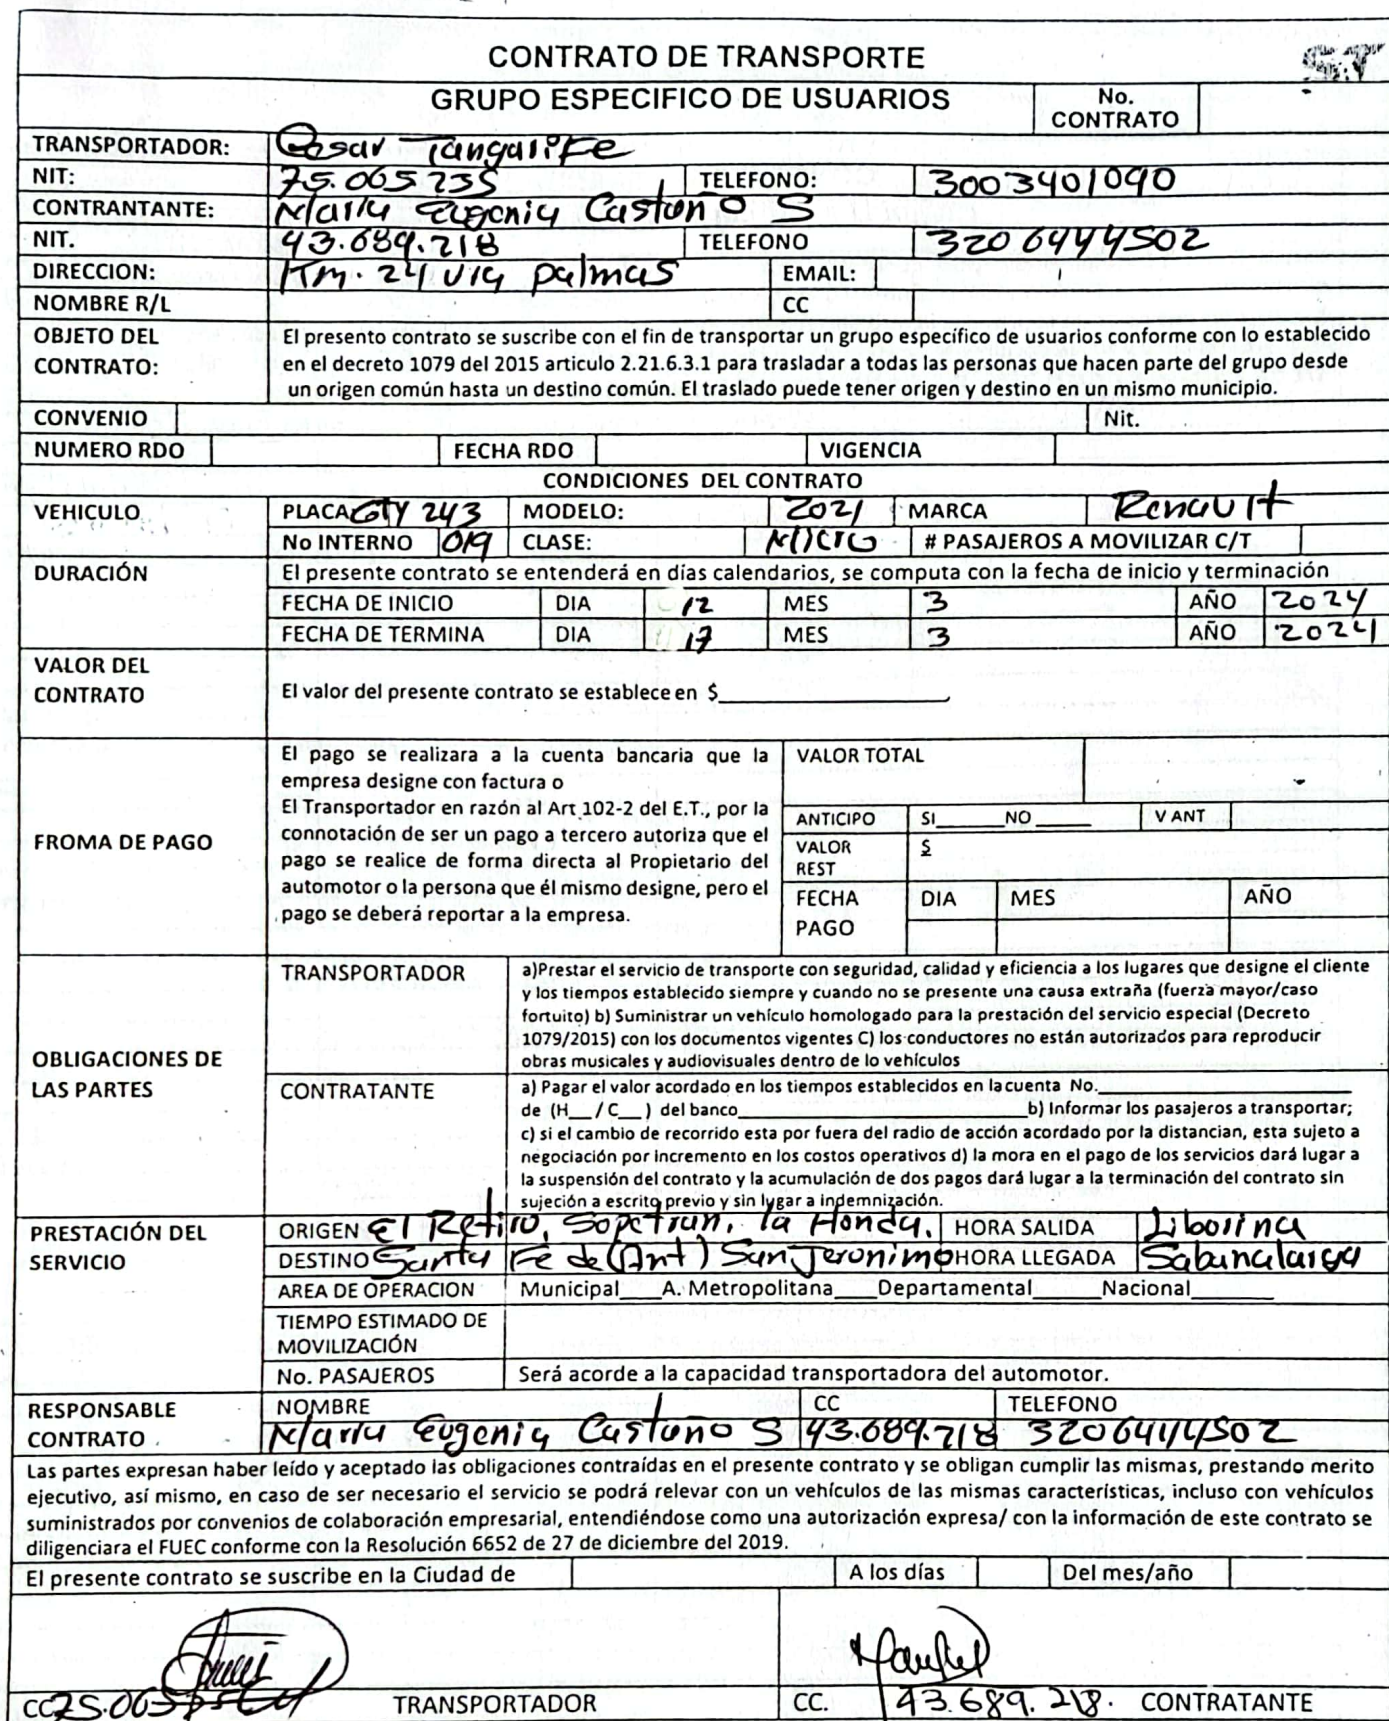 CONTRATO DE TRANSPORTE
GRUPO ESPECIFICO DE USUARIOS No. CONTRATO
TRANSPORTADOR: Cesar Tangarife
NIT: 75.065235 TELEFONO: 3003401090
CONTRANTANTE: Maria Eugenia Castaño S
NIT. 43.689.218 TELEFONO 3206444502
DIRECCION: Km. 24 via palmas EMAIL:
NOMBRE R/L CC
OBJETO DEL CONTRATO: El presento contrato se suscribe con el fin de transportar un grupo específico de usuarios conforme con lo establecido
en el decreto 1079 del 2015 articulo 2.21.6.3.1 para trasladar a todas las personas que hacen parte del grupo desde
un origen común hasta un destino común. El traslado puede tener origen y destino en un mismo municipio.
CONVENIO Nit.
NUMERO RDO FECHA RDO VIGENCIA
CONDICIONES DEL CONTRATO
VEHICULO PLACA GTY 243 MODELO: 2021 MARCA Renault
No INTERNO 019 CLASE: Micro # PASAJEROS A MOVILIZAR C/T
DURACIÓN El presente contrato se entenderá en días calendarios, se computa con la fecha de inicio y terminación
FECHA DE INICIO DIA 12 MES 3 AÑO 2024
FECHA DE TERMINA DIA 17 MES 3 AÑO 2024
VALOR DEL CONTRATO El valor del presente contrato se establece en $
FROMA DE PAGO
El pago se realizara a la cuenta bancaria que la
empresa designe con factura o
El Transportador en razón al Art 102-2 del E.T., por la
connotación de ser un pago a tercero autoriza que el
pago se realice de forma directa al Propietario del
automotor o la persona que él mismo designe, pero el
pago se deberá reportar a la empresa.
VALOR TOTAL
ANTICIPO SI______NO______ V ANT
VALOR REST $
FECHA PAGO DIA MES AÑO
OBLIGACIONES DE LAS PARTES
TRANSPORTADOR a)Prestar el servicio de transporte con seguridad, calidad y eficiencia a los lugares que designe el cliente
y los tiempos establecido siempre y cuando no se presente una causa extraña (fuerza mayor/caso
fortuito) b) Suministrar un vehículo homologado para la prestación del servicio especial (Decreto
1079/2015) con los documentos vigentes C) los conductores no están autorizados para reproducir
obras musicales y audiovisuales dentro de lo vehículos
CONTRATANTE a) Pagar el valor acordado en los tiempos establecidos en la cuenta No.
de (H__ / C__ ) del banco______b) Informar los pasajeros a transportar;
c) si el cambio de recorrido esta por fuera del radio de acción acordado por la distancian, esta sujeto a
negociación por incremento en los costos operativos d) la mora en el pago de los servicios dará lugar a
la suspensión del contrato y la acumulación de dos pagos dará lugar a la terminación del contrato sin
sujeción a escrito previo y sin lygar a indemnización.
PRESTACIÓN DEL SERVICIO
ORIGEN El Retiro, Sopetran, la Honda, HORA SALIDA Liborina
DESTINO Santa Fe de (Ant) San Jeronimo HORA LLEGADA Sabanalarga
AREA DE OPERACION Municipal____A. Metropolitana____Departamental______Nacional______
TIEMPO ESTIMADO DE MOVILIZACIÓN
No. PASAJEROS Será acorde a la capacidad transportadora del automotor.
RESPONSABLE CONTRATO NOMBRE CC TELEFONO
Maria Eugenia Castaño S 43.689.218 3206444502
Las partes expresan haber leído y aceptado las obligaciones contraídas en el presente contrato y se obligan cumplir las mismas, prestando merito
ejecutivo, así mismo, en caso de ser necesario el servicio se podrá relevar con un vehículos de las mismas características, incluso con vehículos
suministrados por convenios de colaboración empresarial, entendiéndose como una autorización expresa/ con la información de este contrato se
diligenciara el FUEC conforme con la Resolución 6652 de 27 de diciembre del 2019.
El presente contrato se suscribe en la Ciudad de A los días Del mes/año
CC TRANSPORTADOR CC. 43.689.218. CONTRATANTE